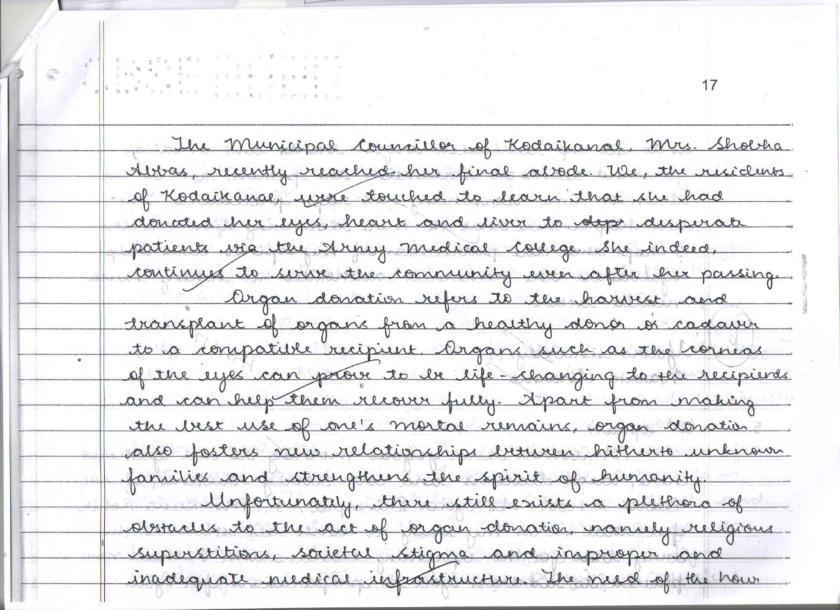 17
The Municipal Councillor of Kodaikanal, Mrs. Shobha
Abbas, recently reached her final abode. We, the residents
of Kodaikanal, were touched to learn that she had
donated her eyes, heart and liver to desperate
patients via the Army Medical College. She indeed,
continues to serve the community even after her passing.
Organ donation refers to the harvest and
transplant of organs from a healthy donor or cadaver
to a compatible recipient. Organs such as the corneas
of the eyes can prove to be life-changing to the recipients
and can help them recover fully. Apart from making
the best use of one's mortal remains, organ donation
also fosters new relationships between hitherto unknown
families and strengthens the spirit of humanity.
Unfortunately, there still exists a plethora of
obstacles to the act of organ donation, namely religious
superstitions, societal stigma and improper and
inadequate medical infrastructure. The need of the hour